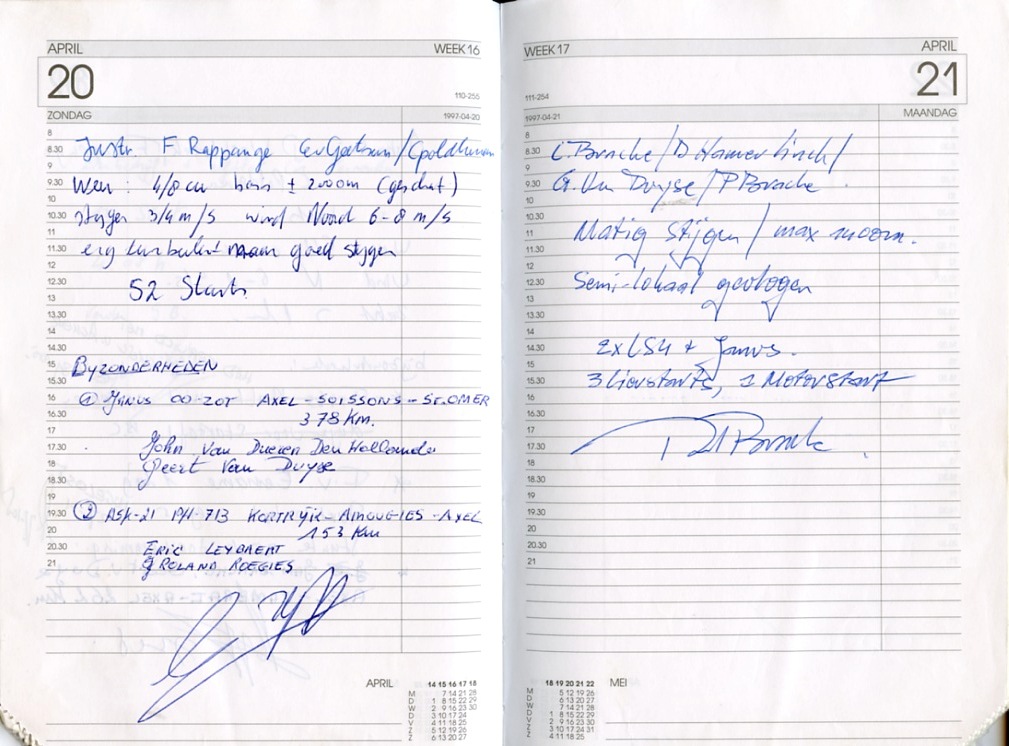 APRIL WEEK 16
20
110-255
ZONDAG 1997-04-20
8
8.30 Instr. F Rappange
9
9.30 Weer: 4/8 cu basis ± 2000m (geschat)
10
10.30 stygen 3/4 m/s wind Noord 6-8 m/s
11
11.30 erg turbulent maar goed stygen
12
12.30 52 Starts
13
13.30
14
14.30
15 Byzonderheden
15.30
16 ① Janus OO-ZOT AXEL - SOISSONS - ST.OMER
16.30 378 Km.
17
17.30 John Van Dueren Den Hollander
18 Geert Van Duyse
18.30
19
19.30 ② ASK-21 PH-713 KORTRYK - AMOUGIES - AXEL
20 153 Km
20.30 ERIC LEYBAERT
21 ROLAND ROEGIES
APRIL
14 15 16 17 18
M 7 14 21 28
D 1 8 15 22 29
W 2 9 16 23 30
D 3 10 17 24
V 4 11 18 25
Z 5 12 19 26
Z 6 13 20 27
WEEK 17 APRIL
21
111-254
1997-04-21 MAANDAG
8
8.30 C. Brache / D Hamerlinck /
9
9.30 G. Van Duyse / P Brache
10
10.30
11 Matig Stijgen / max
11.30
12
12.30 Semi-lokaal gevlogen
13
13.30
14
14.30 2x LS4 + Janus.
15
15.30 3 Lierstarts, 1 Motorstart
16
16.30
17
17.30
18
18.30
19
19.30
20
20.30
21
18 19 20 21 22
M 5 12 19 26
D 6 13 20 27
W 7 14 21 28
D 1 8 15 22 29
V 2 9 16 23 30
Z 3 10 17 24 31
Z 4 11 18 25
MEI